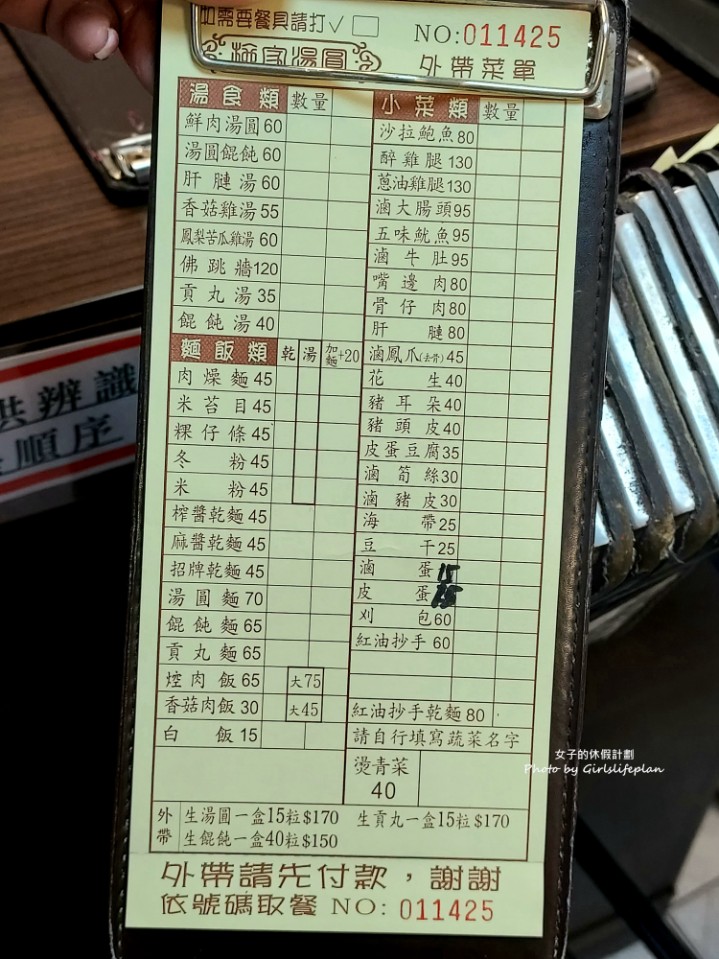 如需要餐具請打✓□
NO:011425
家湯圓
外帶菜單
湯食類 數量
鮮肉湯圓 60
湯圓餛飩 60
肝腱湯 60
香菇雞湯 55
鳳梨苦瓜雞湯 60
佛跳牆 120
貢丸湯 35
餛飩湯 40
麵飯類 乾 湯 加麵+20
肉燥麵 45
米苔目 45
粿仔條 45
冬粉 45
米粉 45
榨醬乾麵 45
麻醬乾麵 45
招牌乾麵 45
湯圓麵 70
餛飩麵 65
貢丸麵 65
焢肉飯 65 大75
香菇肉飯 30 大45
白飯 15
小菜類 數量
沙拉鮑魚 80
醉雞腿 130
蔥油雞腿 130
滷大腸頭 95
五味魷魚 95
滷牛肚 95
嘴邊肉 80
骨仔肉 80
肝腱 80
滷鳳爪(去骨) 45
花生 40
豬耳朵 40
豬頭皮 40
皮蛋豆腐 35
滷筍絲 30
滷豬皮 30
海帶 25
豆干 25
滷蛋 15
皮蛋
刈包 60
紅油抄手 60
紅油抄手乾麵 80
請自行填寫蔬菜名字
燙青菜
40
外帶
生湯圓一盒15粒$170 生貢丸一盒15粒$170
生餛飩一盒40粒$150
外帶請先付款,謝謝
依號碼取餐 NO: 011425
供辨識
順序
女子的休假計劃
Photo by Girlslifeplan